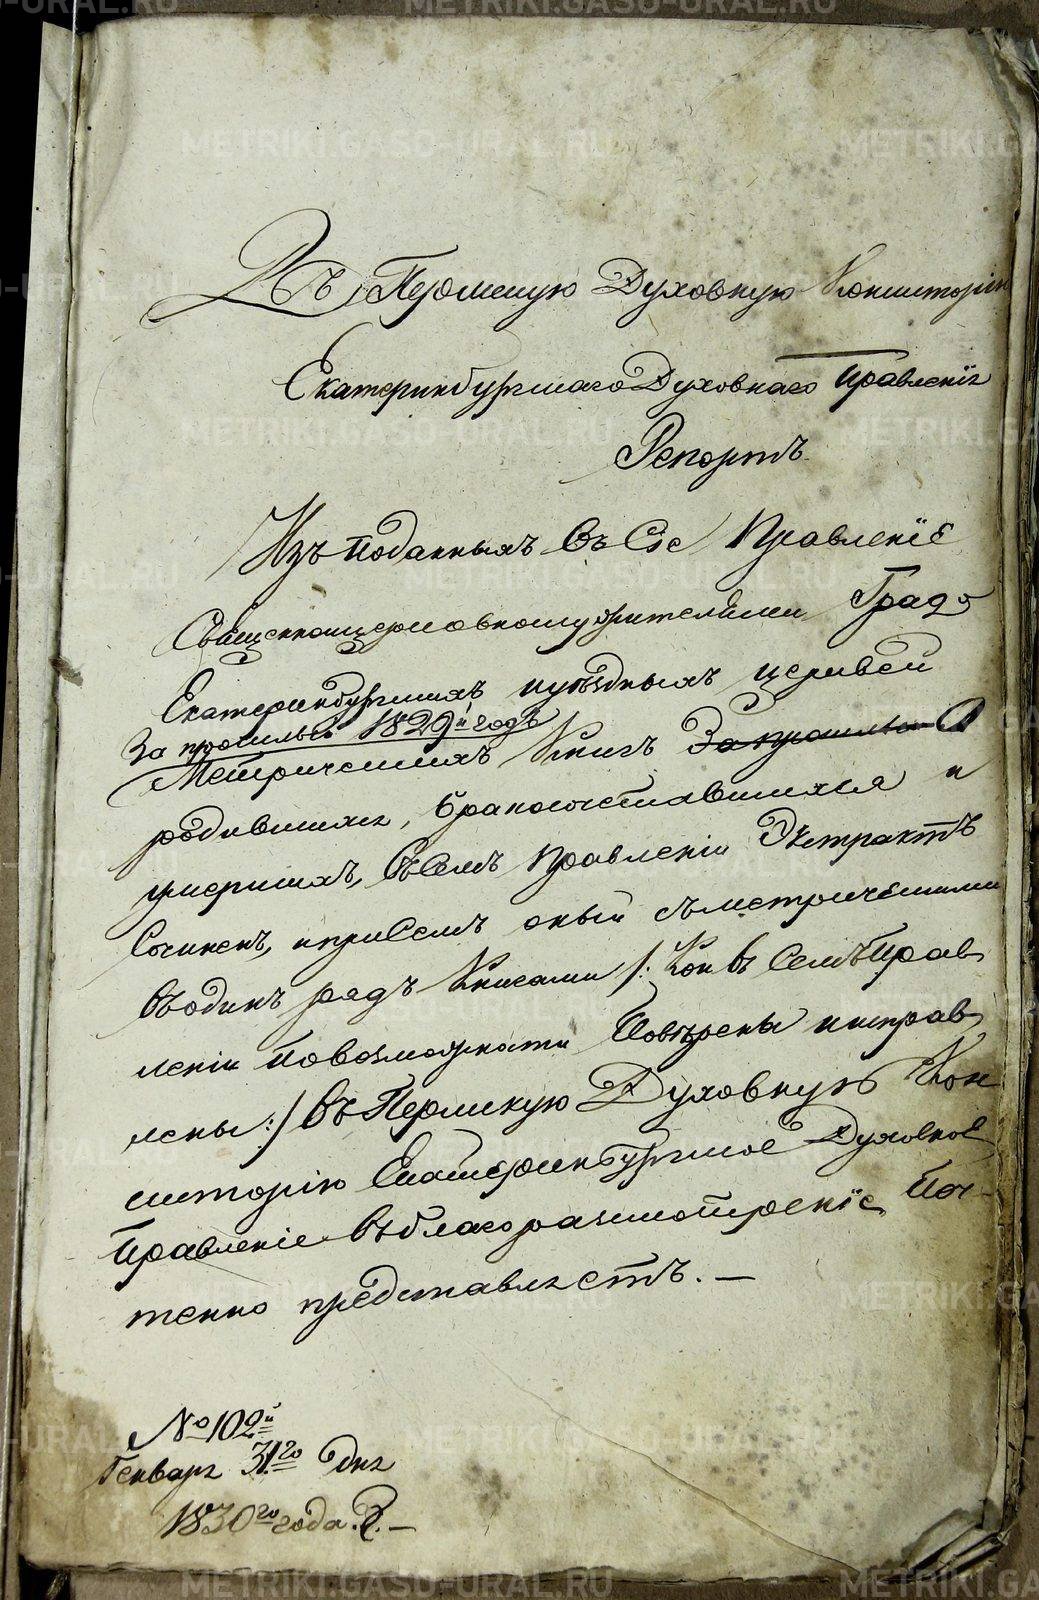 Въ Пермскую Духовную Консисторію
Екатеринбургскаго Духовнаго Правленія
Репортъ
Изъ поданныхъ въ Сіе Правленіе
Священноцерковнослужителями Градо
Екатеринбургскихъ иуѣздныхъ церквей
За прошлый 1829й годъ
Метрическихъ Книгъ За прошлый О
родившихся, бракосочетавшихся и
умершихъ, въ Семъ Правленіи Экстрактъ
Сочиненъ, и при Семъ оный съ метрическими
въ одинъ рядъ Книгами /: Кои въ Семъ Прав
леніи по возможности Повѣрены иисправ
лены :/ въ Пермскую Духовную Кон
систорію Екатеринбургское Духовное
Правленіе въ благоразсмотреніе Поч-
тенно представляетъ. —
№ 102й
Генваря 31го дня
1830го года. —
METRIKI.GASO-URAL.RU